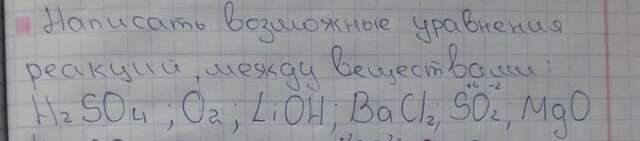 Написать возможные уравнения
реакций, между веществами:
H₂SO₄; O₂; LiOH; BaCl₂; S⁺⁴O₂⁻²; MgO